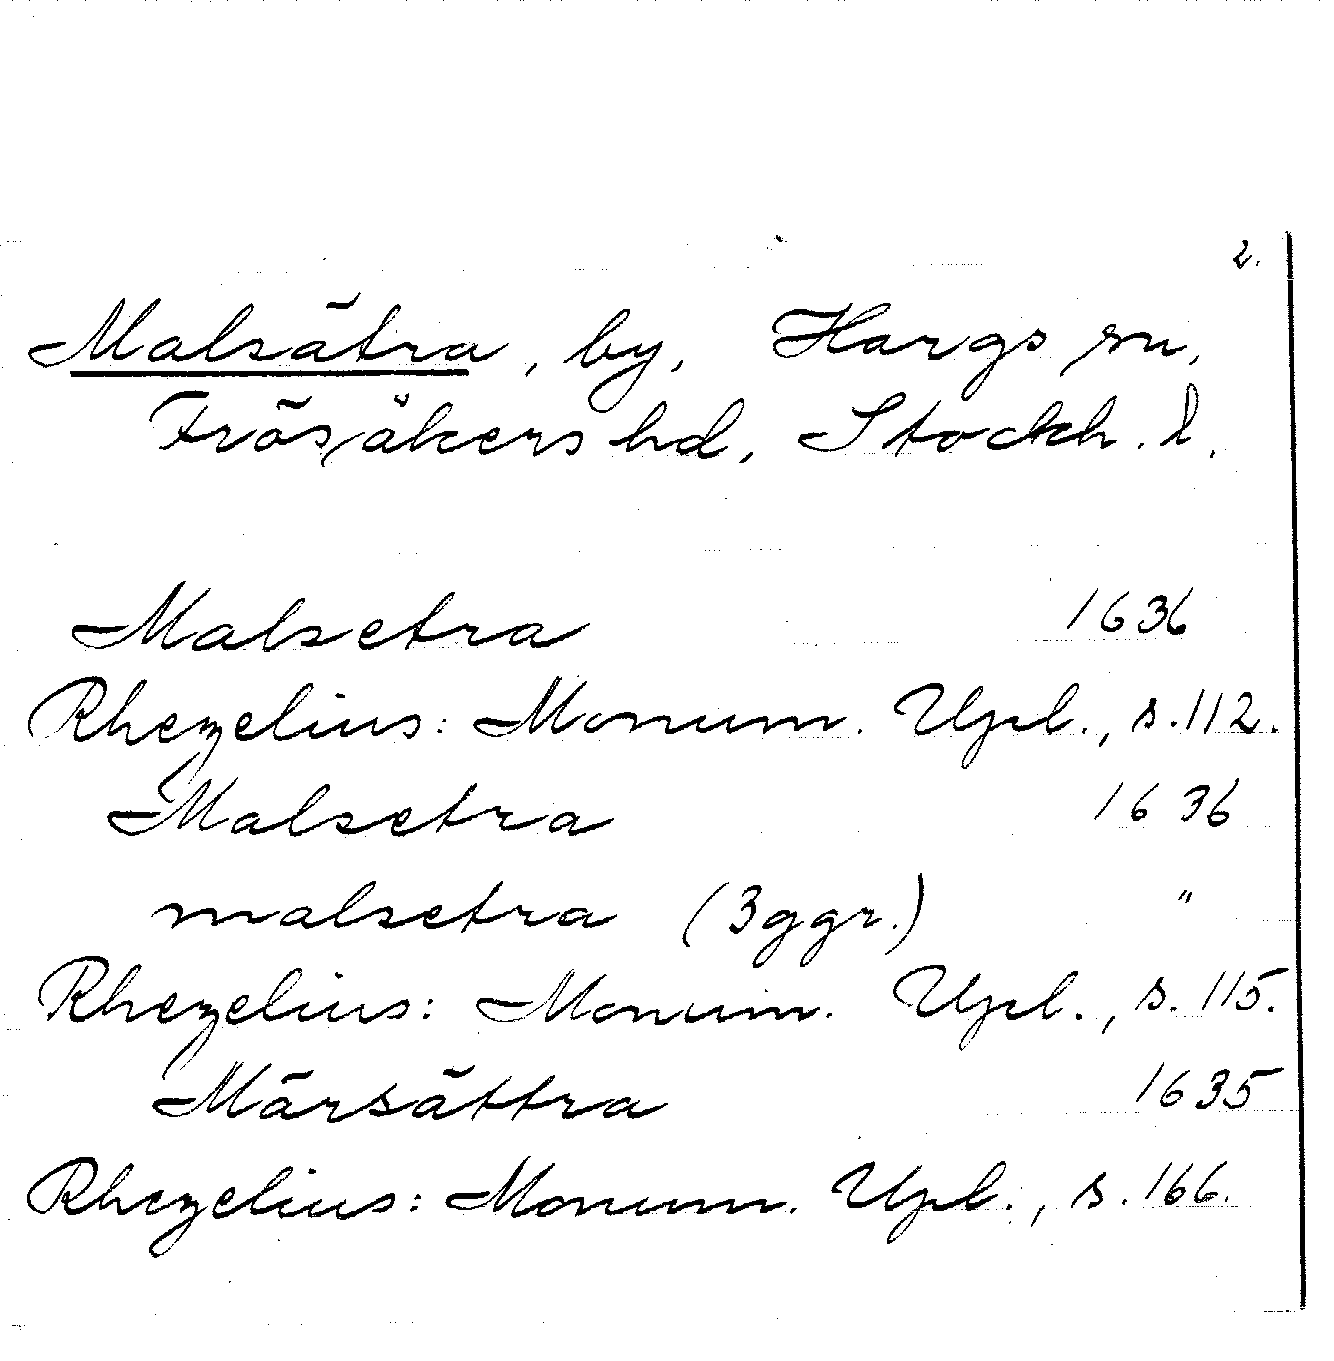 2.
Malsätra, by, Hargs sn,
Frösåkers hd, Stockh. l.
Malsetra 1636
Rhezelius: Monum. Upl., s. 112.
Malsetra 1636
malsetra (3 ggr.) "
Rhezelius: Monum. Upl., s. 115.
Märsättra 1635
Rhezelius: Monum. Upl., s. 166.